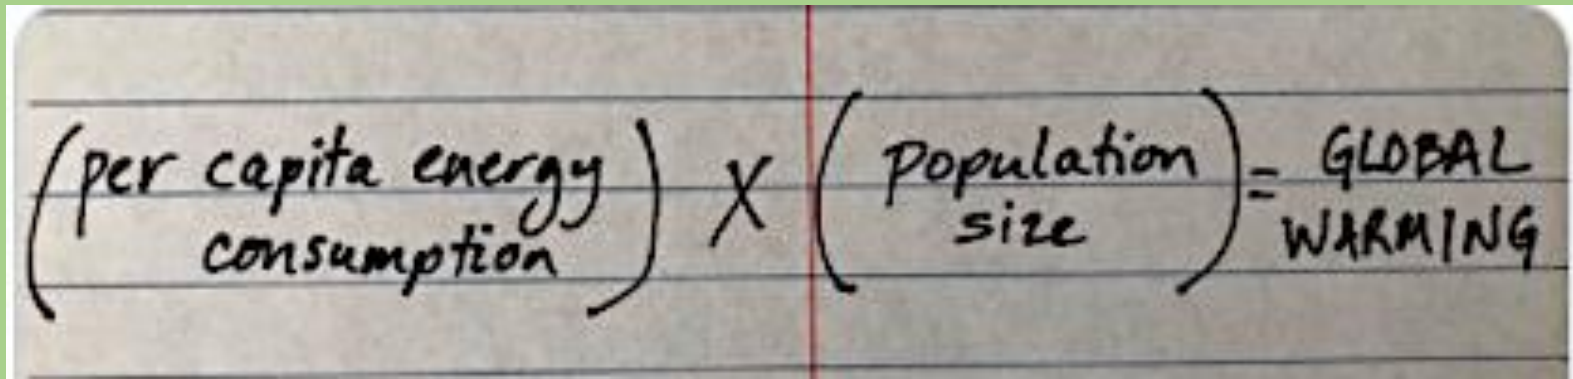 (per capita energy consumption) X (population size) = GLOBAL WARMING